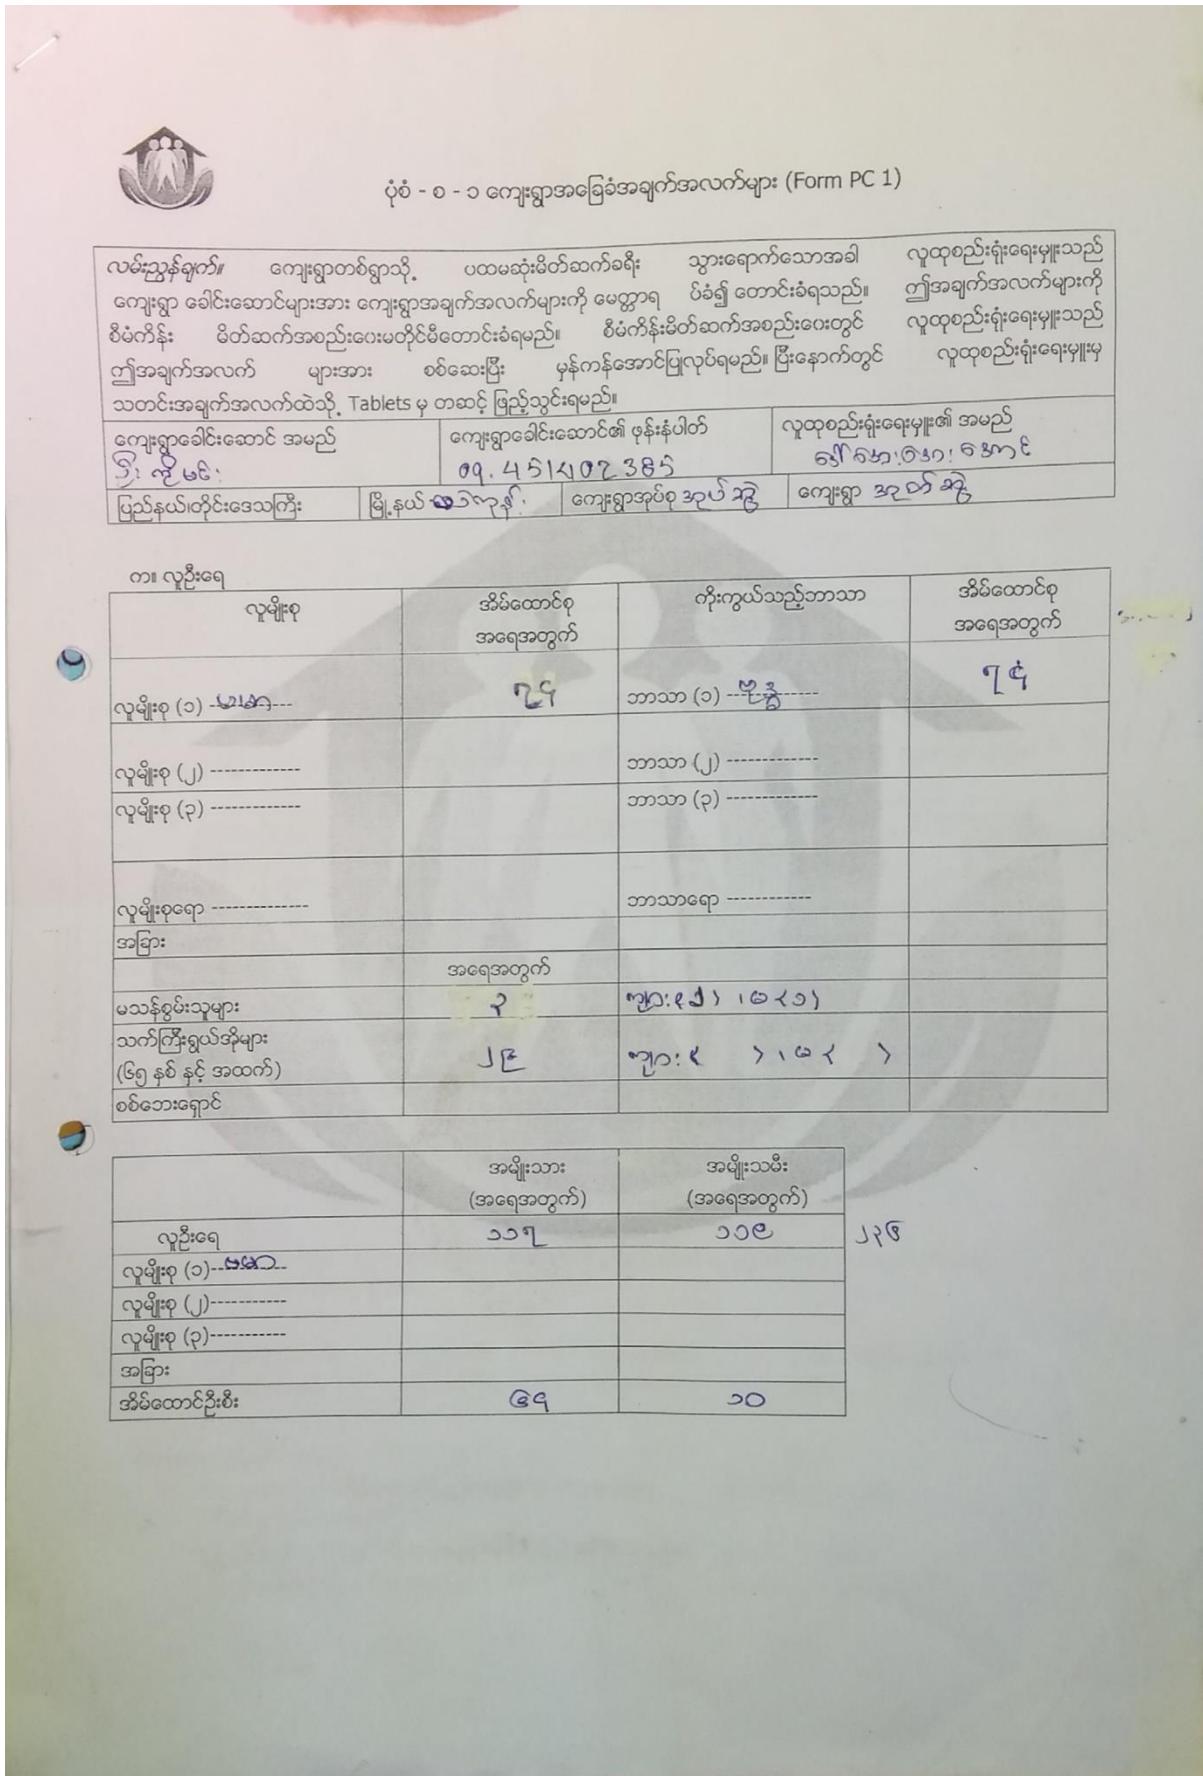 ပုံစံ - စ - ၁ ကျေးရွာအခြေခံအချက်အလက်များ (Form PC 1)
လမ်းညွှန်ချက်။ ကျေးရွာတစ်ရွာသို့ ပထမဆုံးမိတ်ဆက်ခရီး သွားရောက်သောအခါ လူထုစည်းရုံးရေးမှူးသည်
ကျေးရွာ ခေါင်းဆောင်များအား ကျေးရွာအချက်အလက်များကို မေတ္တာရ ပ်ခံ၍ တောင်းခံရသည်။ ဤအချက်အလက်များကို
စီမံကိန်း မိတ်ဆက်အစည်းဝေးမတိုင်မီတောင်းခံရမည်။ စီမံကိန်းမိတ်ဆက်အစည်းဝေးတွင် လူထုစည်းရုံးရေးမှူးသည်
ဤအချက်အလက် များအား စစ်ဆေးပြီး မှန်ကန်အောင်ပြုလုပ်ရမည်။ ပြီးနောက်တွင် လူထုစည်းရုံးရေးမှူးမှ
သတင်းအချက်အလက်ထဲသို့ Tablets မှ တဆင့် ဖြည့်သွင်းရမည်။
ကျေးရွာခေါင်းဆောင် အမည် ကျေးရွာခေါင်းဆောင်၏ ဖုန်းနံပါတ် လူထုစည်းရုံးရေးမှူး၏ အမည်
ဦးကိုမင်း 09.451402385 ဒေါ်အေးအေးအောင်
ပြည်နယ်၊တိုင်းဒေသကြီး မြို့နယ် ကျေးရွာအုပ်စု အုတ်ဆွဲ ကျေးရွာ အုတ်ဆွဲ
က။ လူဦးရေ
လူမျိုးစု အိမ်ထောင်စု ကိုးကွယ်သည့်ဘာသာ အိမ်ထောင်စု
အရေအတွက် အရေအတွက်
လူမျိုးစု (၁) ---ဗမာ--- ၇၄ ဘာသာ (၁) ---ဗုဒ္ဓ------ ၇၄
လူမျိုးစု (၂) ------------- ဘာသာ (၂) -------------
လူမျိုးစု (၃) ------------- ဘာသာ (၃) -------------
လူမျိုးစုရော -------------- ဘာသာရော ------------
အခြား
အရေအတွက်
မသန်စွမ်းသူများ ၃ ကျား(၂)၊ မ(၁)
သက်ကြီးရွယ်အိုများ
(၆၅ နှစ် နှင့် အထက်) ၂၉ ကျား( )၊ မ( )
စစ်ဘေးရှောင်
အမျိုးသား အမျိုးသမီး
(အရေအတွက်) (အရေအတွက်)
လူဦးရေ ၁၁၇ ၁၁၉ ၂၃၆
လူမျိုးစု (၁)--ဗမာ--
လူမျိုးစု (၂)-----------
လူမျိုးစု (၃)-----------
အခြား
အိမ်ထောင်ဦးစီး ၆၄ ၁၀